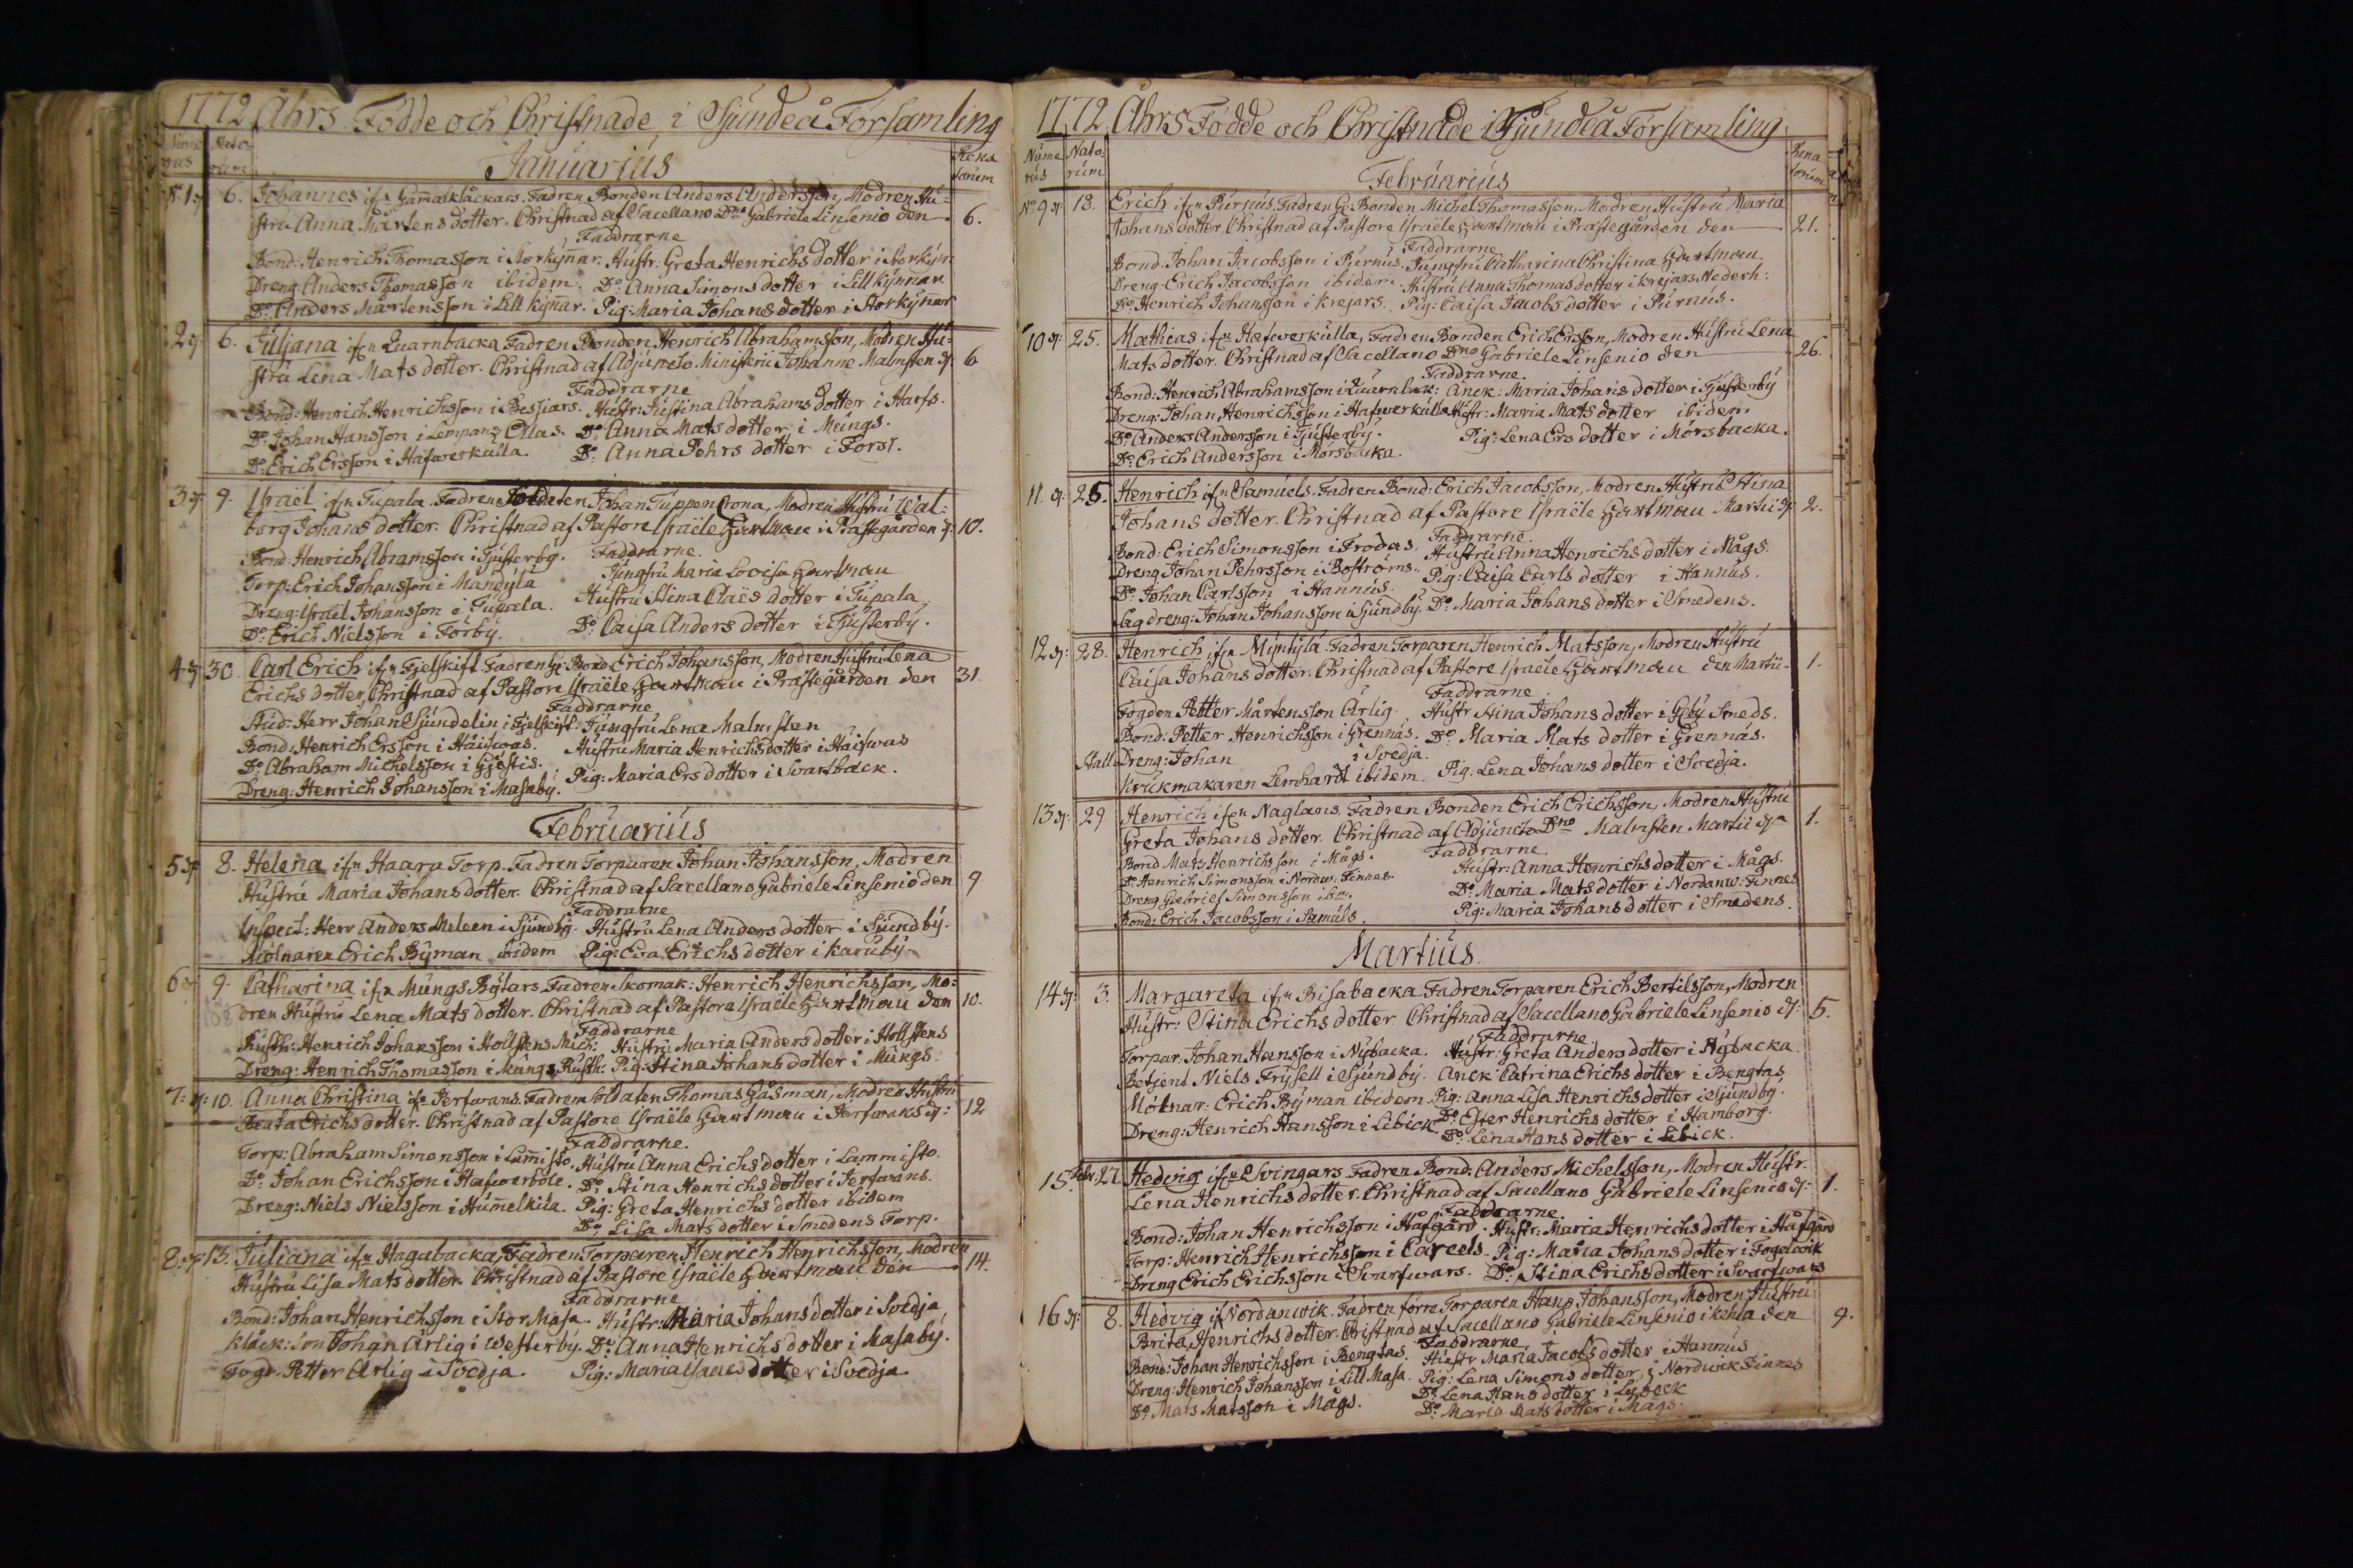 1772 Åhrs Födde och Christnade i Sjundeå Församling
Nume rus Nato: rum Rena torum
Januarius
No 1. 6. Johannes ifrn Gam̄alklåckars. Fadren Bonden Anders Andersson, Modren Hu=
stru Anna Mårtens dotter. Christnad af Sacellano Dno Gabriele Linsenio den 6.
Faddrarne
Bond: Henrich Thomasson i Storkyn̄ar. Hustr: Greta Henrichs dotter i Storkyn̄:
Dreng: Anders Thomasson ibidem. Do: Anna Simons dotter i Lill kynnar
Do: Anders Mårtensson i Lill kyn̄ar. Pig: Maria Johans dotter i Storkyn̄ar
2 6. Juljana ifrn Quarnbacka Fadren Bonden Henrich Abrahamsson, Modren Hu=
stru Lena Mats dotter. Christnad af Adjuncto Ministerii Johanne Malmsten d: 6
Faddrarne
Bond: Henrich Henrichsson i Bessiars. Hustr: Justina Abrahams dotter i Harfs.
Do: Johan Hansson i Lempans Ollas. Do: Anna Mats dotter i Mungs.
Do: Erich Ersson i Hafwerkulla. Do: Anna Pehrs dotter i Fors.
3 9. Israël ifrn Tupala. Fadren Soldaten Johan Tuppon Crona, Modren Hustru Wal=
borg Johans dotter. Christnad af Pastore Israële Hartman i Prästegården d: 10.
Bond: Henrich Abramsson i Tjusterby. Faddrarne.
Jungfru Maria Lovisa Hartman
Torp: Erich Johansson i Mandyla
Hustru Stina Claës dotter i Tupala
Dreng: Israel Johansson i Tupala.
Do: Erich Nielsson i Förby. Do: Caisa Anders dotter i Tjusterby.
4 30. Carl Erich ifrn Fjelskift Fadren Bond Erich Johansson, Modren Hustru Lena
Erichs dotter, Christnad af Pastore Israële Hartman i Prästegården den 31.
Faddrarne
Stud: Herr Johan Sjundelin i Fjelskift. Jungfru Lena Malmsten
Bond: Henrich Ersson i Håifwas. Hustru Maria Henrichs dotter i Håifwas
Do: Abraham Michelsson i Gjöstis.
Dreng: Henrich Johansson i Masaby. Pig: Maria Ers dotter i Svartbäck.
Februarius
5 8. Helena ifrn Haara Torp. Fadren Torparen Johan Johansson, Modren
Hustru Maria Johans dotter. Christnad af Sacellano Gabriele Linsenio den 9
Faddrarne
Inspect: Herr Anders Meleen i Sjundby. Hustru Lena Anders dotter i Sjundby.
Mölnaren Erich Byman ibidem Pig: Eva Erichs dotter i Karuby
6 9. Catharina ifrn Mungs Rytars Fadren Skomak: Henrich Henrichsson, Mo=
dren Hustru Lena Mats dotter. Christnad af Pastore Israële Hartman den 10.
Faddrarne
Rusth: Henrich Johansson i Hollstens Mich: Hustru Maria Anders dotter i Hollstens
Dreng: Henrich Thomasson i Mungs Rusth: Pig: Stina Johans dotter i Mungs.
7: 10. Anna Christina ifrn Jerfwans. Fadren Soldaten Thomas Gåsman, Modren Hustru
Beata Erichs dotter. Christnad af Pastore Israële Hartman i Jerfwans d: 12
Faddrarne.
Torp: Abraham Simonsson i Lam̄isto. Hustru Anna Erichs dotter i Lammisto.
Do: Johan Erichsson i Hafwerböle. Do: Stina Henrichs dotter i Jerfwans.
Dreng: Niels Nielsson i Hum̄elkila. Pig: Greta Henrichs dotter ibidem
Do: Lisa Mats dotter i Smedens Torp.
8. 13. Juliana ifrn Hagabacka, Fadren Torparen Henrich Henrichsson, Modren
Hustru Lisa Mats dotter. Christnad af Pastore Israële Hartman den 14.
Faddrarne
Bond: Johan Henrichsson i Stor Masa. Hustr: Maria Johans dotter i Svedja,
Klåck: son Johan Ärlig i Westerby. Do: Anna Henrichs dotter i Masaby.
Fogd. Petter Ärlig i Svedja. Pig: Maria Isaacs dotter i Svedja
1772 Åhrs Födde och Christnade i Sjundeå Församling.
Nume rus Nato: rum Rena torum
Februarius
No 9 18. Erich ifrn Purnus. Fadren Bonden Michel Thomasson, Modren Hustru Maria
Johans dotter, Christnad af Pastore Israële Hartman i Prästegården den 21.
Faddrarne
Bond: Johan Jacobsson i Purnus. Jungfru Catharina Christina Hartman
Dreng: Erich Jacobsson ibidem Hustru Anna Thomas dotter i Krejars Nederh:
Do: Henrich Johansson i krejars. Pig: Caisa Jacobs dotter i Purnus.
10 25. Mathias ifrn Hafwerkulla, Fadren Bonden Erich Ersson, Modren Hustru Lena
Mats dotter. Christnad af Sacellano Dno Gabriele Linsenio den 26.
Faddrarne.
Bond: Henrich Abrahamsson i Quarnback: Änck: Maria Johans dotter i Tjusterby
Dreng: Johan Henrichsson i Hafwerkulla Hustr: Maria Mats dotter ibidem
Do Anders Andersson i Tjusterby. Pig: Lena Ers dotter i Mörsbacka.
Do: Erich Andersson i Mörsbacka.
11. 25. Henrich ifrn Samuels. Fadren Bond: Erich Jacobsson, Modren Hustru Stina
Johans dotter. Christnad af Pastore Israële Hartman Martii d: 2.
Faddrarne.
Bond: Erich Simonsson i Frodas. Hustru Anna Henrichs dotter i Mågs.
Dreng: Johan Pehrsson i Boströms. Pig: Caisa Carls dotter i Hannus.
Do: Johan Carlsson i Hannus.
Leg dreng: Johan Johansson i Sjundby. Do: Maria Johans dotter i Smedens.
12 28. Henrich ifrn Myntylä Fadren Torparen Henrich Matsson, Modren Hustru
Caisa Johans dotter. Christnad af Pastore Israële Hartman den Martii 1.
Faddrarne
Fogden Petter Mårtensson Ärlig. Hustr Stina Johans dotter i Smeds.
Bond: Petter Henrichsson i Grennäs. Do: Maria Mats dotter i Grennäs.
Stall Dreng: Johan i Svedja.
Krukmakaren Lemhardt ibidem. Pig: Lena Johans dotter i Svedja.
13 29 Henrich ifrn Naglans. Fadren Bonden Erich Erichsson, Modren Hustru
Greta Johans dotter. Christnad af Adjuncto Dno Malmsten Martii 1.
Faddrarne.
Bond Mats Henrichsson i Mågs. Hustr: Anna Henrichs dotter i Mågs.
Do: Henrich Simonsson i Nordw: Finnes. Do: Maria Mats dotter i Nordanw: Finnes
Dreng Gabriel Simonsson ibm.
Bond: Erich Jacobsson i Samuls. Pig: Maria Johans dotter i Smedens.
Martius.
14 3. Margareta ifrn Bisabacka Fadren Torparen Erich Bertilsson, Modren
Hustr: Stina Erichs dotter. Christnad af Sacellano Gabriele Linsenio d: 5.
Faddrarne.
Torpar. Johan Hansson i Nybacka. Hustr: Greta Anders dotter i Nybacka.
Betjent Niels Frysell i Sjundby. Änck Catrina Erichs dotter i Bengtas
Mölnar: Erich Byman ibidem. Pig: Anna Lisa Henrichs dotter i Sjundby.
Dreng: Henrich Hansson i Libick Do: Ester Henrichs dotter i Hamborg.
Do: Lena Hans dotter i Libick.
15. Febr: 27. Hedvig ifrn Svingars Fadren Bond: Anders Michelsson, Modren Hustr.
Lena Henrichs dotter. Christnad af Sacellano Gabriele Linsenio d: 1.
Faddrarne.
Bond: Johan Henrichsson i Håfgård. Hustr: Maria Henrichs dotter i Håfgård
Torp: Henrich Henrichsson i Carcels. Pig: Maria Johans dotter i Fogelwik
Dreng Erich Erichsson i Svartwars. Do: Stina Erichs dotter i Svartwars
16 8. Hedvig if Nordanwik. Fadren förre Torparen Hans Johansson, Modren Hustru
Brita Henrichs dotter. Christnad af Sacellano Gabriele Linsenio i Kehla den 9.
Faddrarne
Bond: Johan Henrichsson i Bengtas. Hustr Maria Jacobs dotter i Hannus
Dreng: Henrich Johansson i Lill Masa. Pig: Lena Simons dotter i Nordwik Finnes
Do: Lena Hans dotter i Lybeck
Do Mats Matsson i Mågs. Do: Maria Mats dotter i Mågs.